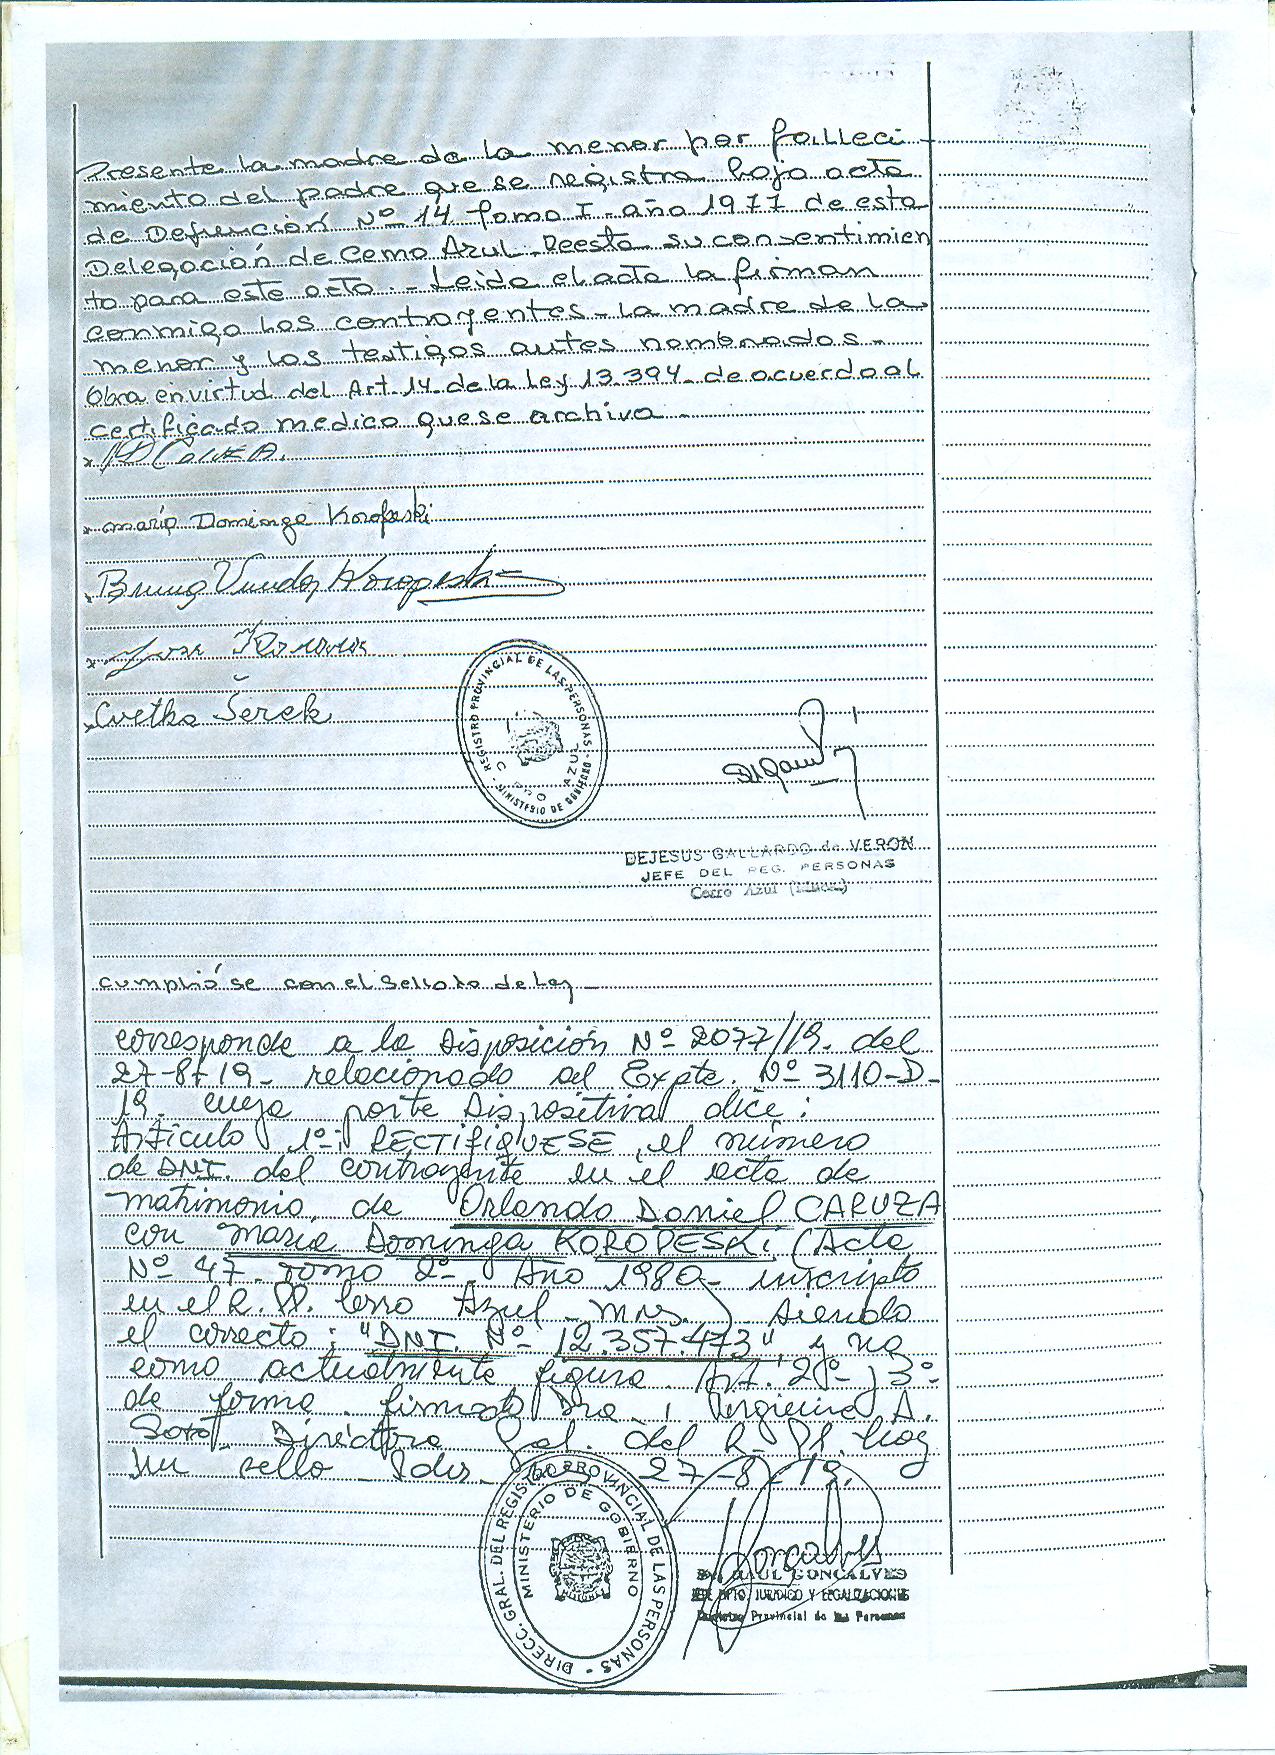 Presente la madre de la menor por falleci-
miento del padre que se registra bajo acta
de Defunción Nº 14 Tomo I - año 1977 de esta
Delegación de Cerro Azul. Presta su consentimien
to para este acto. - Leido el acta la firman
conmigo los contrayentes - la madre de la
menor y los testigos antes nombrados -
Obra en virtud del Art. 14 de la Ley 13.394 - de acuerdo al
certificado medico que se archiva -
x maria Dominga Koropeski
x Cvetka Šerek
REGISTRO PROVINCIAL DE LAS PERSONAS - MINISTERIO DE GOBIERNO -
CERRO AZUL
DEJESUS GALLARDO de VERON
JEFE DEL REG. PERSONAS
Cerro Azul (Misiones)
cumplió se con el Sellato de Ley -
corresponde a la Disposición Nº 2077/19. del
27-8-19- relacionado al Expte. Nº 3110-D-
19. cuya parte Dispositiva dice:
Artículo 1º: RECTIFIQUESE, el número
de DNI. del contrayente en el acta de
matrimonio, de Orlando Daniel CARUZA
con Maria Dominga KOROPESKI (Acta
Nº 47 - Tomo 2º - Año 1980 - inscripto
en el R. PP. Cerro Azul - Mnes.) siendo
el correcto: "DNI. Nº 12.357.473" y no
como actualmente figura. Art. 2º y 3º
de forma. firmado Dra. A.
Soto - Directora Gral. del R. PP. hay
un sello - Pdas. 27-8-19.
DIRECC. GRAL. DEL REGISTRO PROVINCIAL DE LAS PERSONAS -
MINISTERIO DE GOBIERNO
MISIONES
Dr. RAUL GONCALVES
JEFE DPTO. JURIDICO Y LEGALIZACIONES
Registro Provincial de las Personas